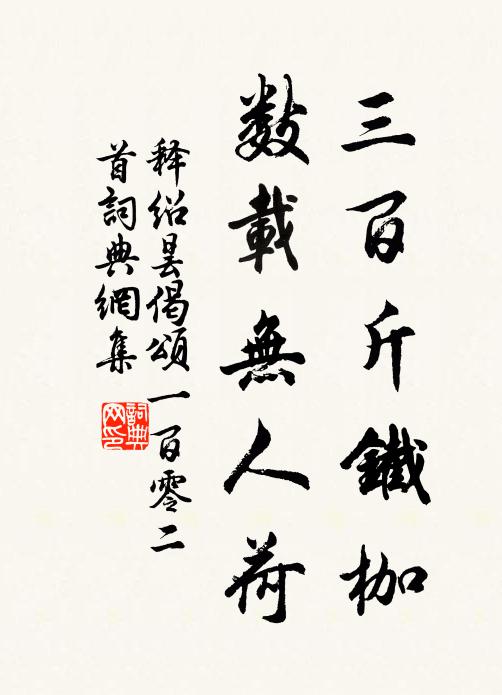 三百斤鐵枷
數載無人荷
释紹曇偈頌一百零二
首詞典網集
詞典网印